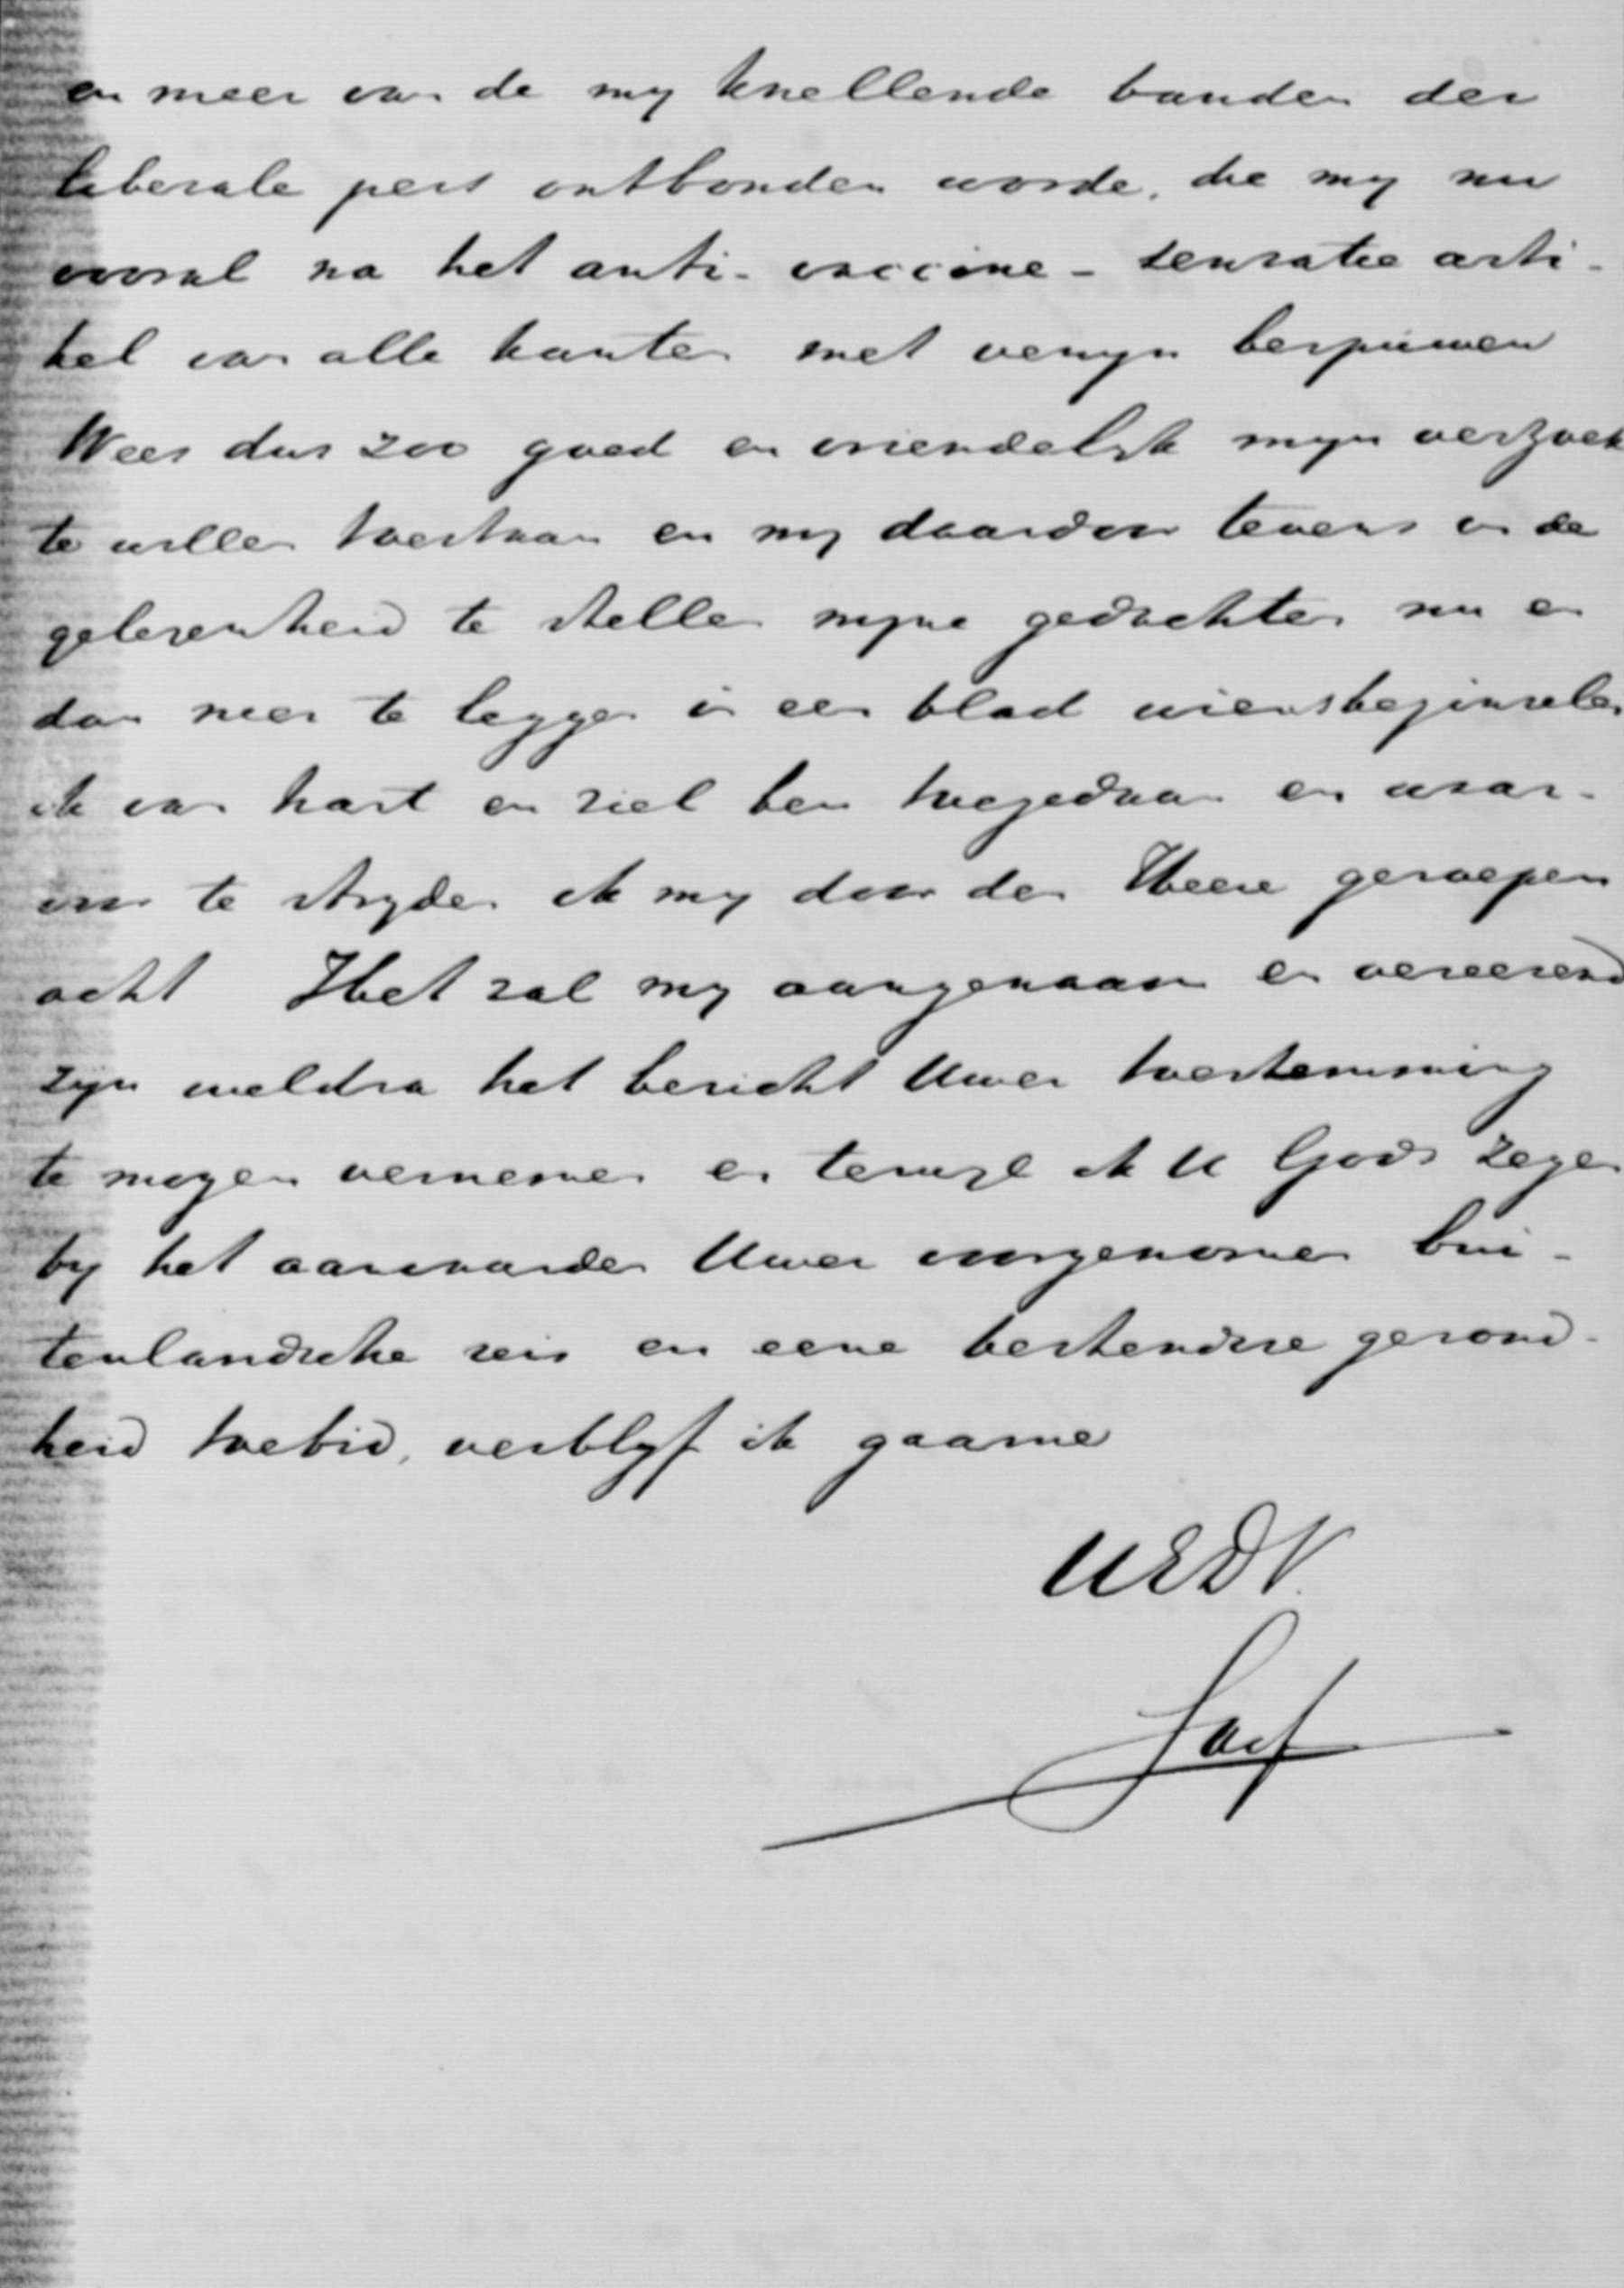 en meer van de my knellende banden der
liberale pers ontbonden worde, die my nu
vooral na het anti-vaccine-sensatie arti-
kel van alle kanten met venyn bespuwen
Wees dus zoo goed en vriendelyk myn verzoek
te willen toestaan en my daardoor tevens in de
gelegenheid te stellen myne gedachten nu en
dan neer te leggen in een blad wiens beginselen
ik van hart en ziel ben toegedaan en waar-
voor te stryden ik my door den Heere geroepen
acht Het zal my aangenaam en vereerend
zyn weldra het bericht Uwer toestemming
te mogen vernemen en terwyl ik U Gods zegen
by het aanvaarden Uwer voorgenomen bui-
tenlandsche reis en eene bestendige gezond-
heid toebid, verblyf ik gaarne
UEDV.